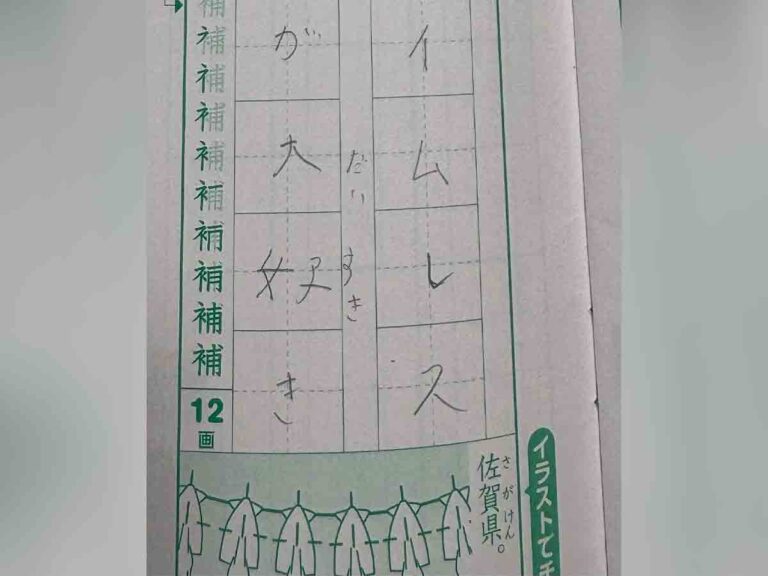 イラストで
さがけん
佐賀県。
イムレス
だいすき
が大好き
補補補補補補補補補補
12画